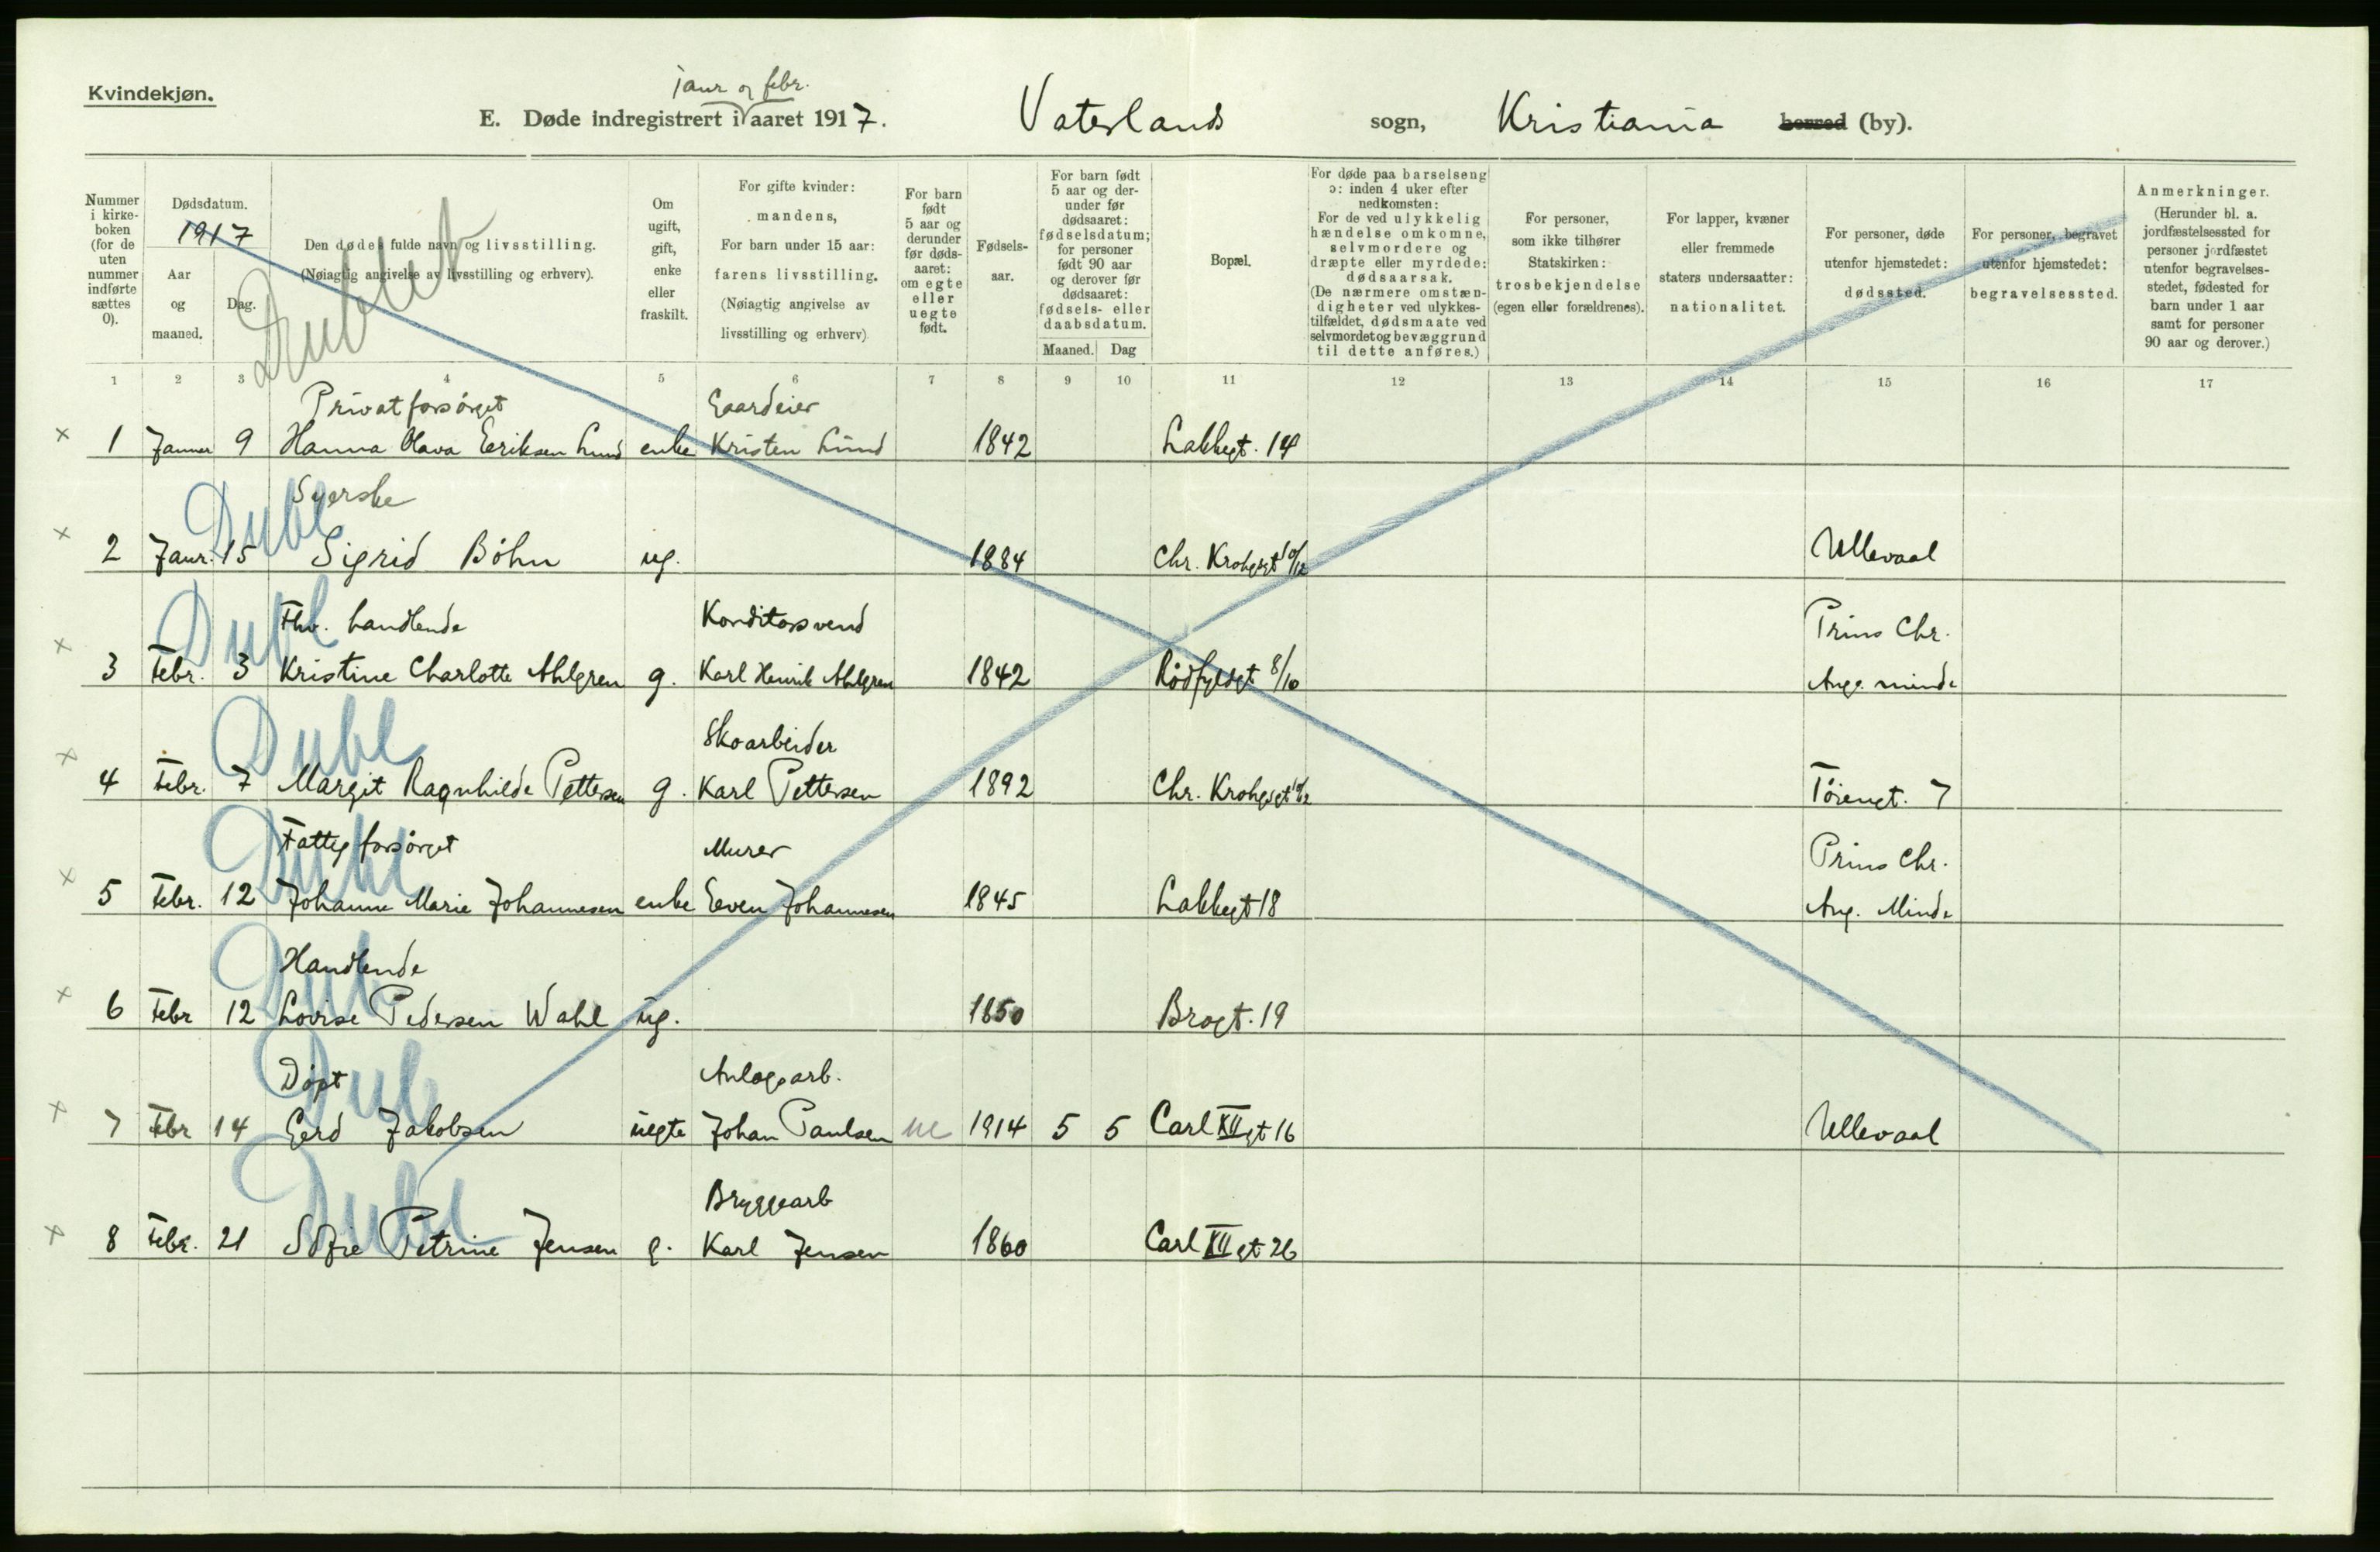 Kvindekjøn.
janr og febr.
E. Døde indregistrert i aaret 1917. Vaterlands sogn, Kristiania herred (by).
Nummer i kirke-boken (for de uten nummer indførte sættes 0).
Dødsdatum.
1917
Aar og maaned.
Dag.
Den dødes fulde navn og livsstilling.
(Nøiagtig angivelse av livsstilling og erhverv).
Dublet
Om ugift, gift, enke eller fraskilt.
For gifte kvinder: mandens,
For barn under 15 aar: farens livsstilling.
(Nøiagtig angivelse av livsstilling og erhverv)
For barn født 5 aar og derunder før døds-aaret: om egte eller uegte født.
Fødsels-aar.
For barn født 5 aar og der-under før dødsaaret: fødselsdatum; for personer født 90 aar og derover før dødsaaret: fødsels- eller daabsdatum.
Maaned. Dag
Bopæl.
For døde paa barselseng ɔ: inden 4 uker efter nedkomsten:
For de ved ulykkelig hændelse omkomne, selvmordere og dræpte eller myrdede: dødsaarsak.
(De nærmere omstæn-digheter ved ulykkes-tilfældet, dødsmaate ved selvmordet og bevæggrund til dette anføres.)
For personer, som ikke tilhører Statskirken: trosbekjendelse (egen eller forældrenes).
For lapper, kvæner eller fremmede staters undersaatter: nationalitet.
For personer, døde utenfor hjemstedet: dødssted.
For personer, begravet utenfor hjemstedet: begravelsessted.
Anmerkninger.
(Herunder bl. a. jordfæstelsessted for personer jordfæstet utenfor begravelses-stedet, fødested for barn under 1 aar samt for personer 90 aar og derover.)
1 2 3 4 5 6 7 8 9 10 11 12 13 14 15 16 17
Privat forsørget Gaardeier
x 1 Januar 9 Hanna Olava Eeriksen Lund enke Kristen Lund 1842 Lakkegt. 14
Dubl Syerske
x 2 Janr. 15 Sigrid Böhn ug. 1884 Chr. Krohgsgt 10/12 Ullevaal
Dubl Fhv. handlende Konditorsvend Prins Chr.
x 3 Febr. 3 Kristine Charlotte Ahlgren g. Karl Henrik Ahlgren 1842 Rödfyldgt 8/10 Aug. minde
Dubl Skoarbeider
x 4 Febr. 7 Margit Ragnhilde Pettersen g. Karl Pettersen 1892 Chr. Krohgsgt 10/12 Töiengt. 7
Dubl Fattigforsørget Murer Prins Chr.
x 5 Febr. 12 Johanne Marie Johannesen enke Even Johannesen 1845 Lakkegt 18 Aug. Minde
Dub Handlende
x 6 Febr 12 Lovise Pedersen Wahl ug. 1850 Brogt. 19
Dub Döpt Anlægsarb.
x 7 Fbr 14 Gerd Jakobsen uegte Johan Paulsen ue 1914 5 5 Carl XII gt 16 Ullevaal
Dubl Bryggearb
x 8 Febr. 21 Sofie Petrine Jensen g. Karl Jensen 1860 Carl XII gt 26